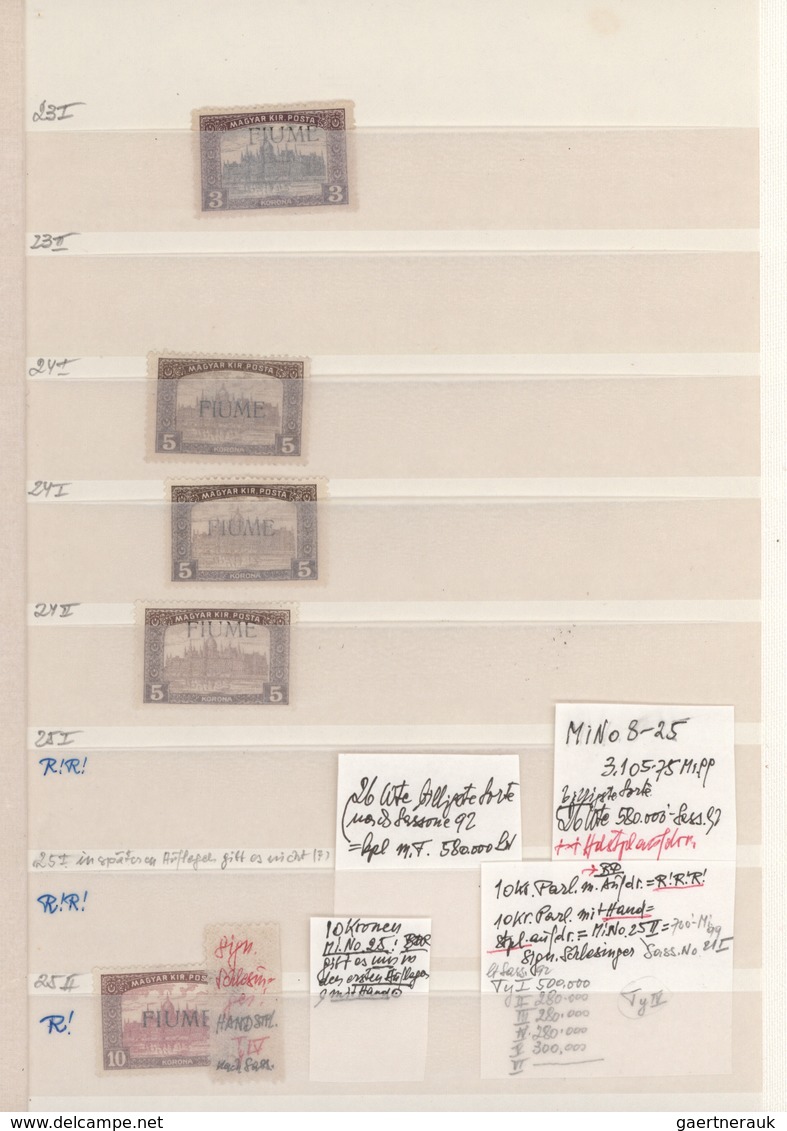 23 I
MAGYAR KIR. POSTA
FIUME
3 3
KORONA
23 II
24 I
MAGYAR KIR. POSTA
FIUME
5 5
KORONA
24 I
MAGYAR KIR. POSTA
FIUME
5 5
KORONA
24 II
MAGYAR KIR. POSTA
FIUME
5 5
KORONA
25 I
R!R!
MiNo 8-25
3.105.75 Mi.
26 Wte
580.000
26 Wte billigste Sorte
nach Sassone 92
= kpl m.T. 580.000
25 I in späteren Auflagen gibt es nicht (?)
R!R!
10 Kr. Parl. m. Aufdr. = R!R!R!
10 Kr. Parl. mit Hand=
stpl. aufdr. = MiNo. 25 II = 700.- Mi 99
Sign. Schlesinger Sass. No 21 I
Sass. 92
Ty I 500.000
II 280.000
III 280.000
IV 280.000
V 300.000
VI
Ty IV
10 Kronen
Mi. No. 25 I
gibt es nur in
den ersten Auflagen
mit Hand
25 II
R!
MAGYAR KIR. POSTA
FIUME
10
KORONA
Sign.
Schlesin-
ger
HANDSTL.
T IV
nach Sass.
gaertnerauk